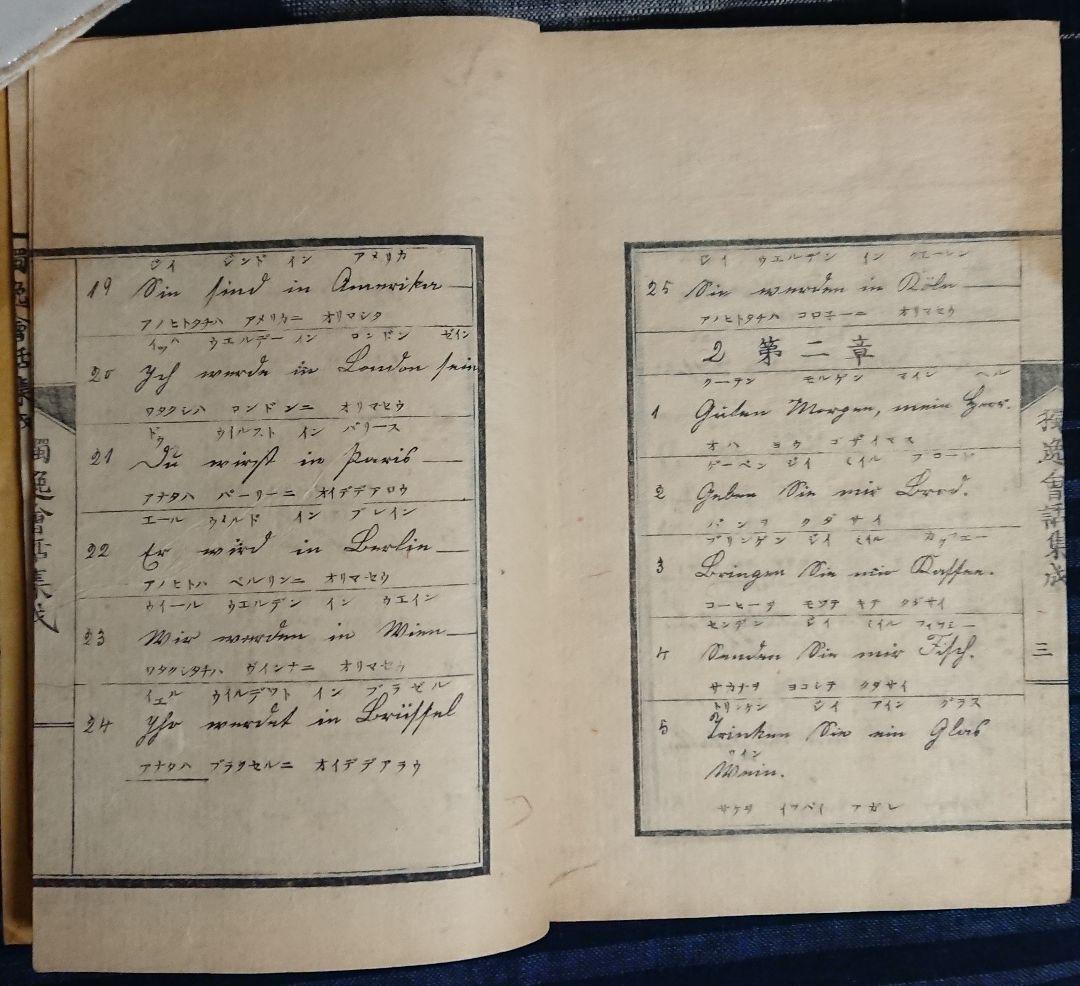 ジイ ジンド イン アメリカ
19 Sie sind in Amerika
アノヒトタチハ アメリカニ オリマシタ
イッハ ウエルデー イン ロンドン ゼイン
20 Ych werde in London sein
ワタクシハ ロンドンニ オリマセウ
ドウ ウイルスト イン パリース
21 Du wirst in Paris
アナタハ パーリーニ オイデデアロウ
エール ウイルド イン ブレイン
22 Er wird in Berlin
アノヒトハ ベルリンニ オリマセウ
ウイール ウエルデン イン ウエイン
23 Wir werden in Wien
ワタクシタチハ ヴインナニ オリマセウ
イエル ウイルデット イン ブラゼル
24 Yhr werdet in Brüssel
アナタハ ブラクセルニ オイデデアラウ
獨逸會話集成
ジイ ウエルデン イン
25 Sie werden in Köln
アノヒトタチハ コロ子ーニ オリマセウ
2 第二章
クーテン モルゲン マイン ヘル
1 Guten Morgen, mein Herr.
オハ ヨウ ゴザイマス
ゲーベン ジイ ミイル ブロード
2 Geben Sie mir Brod.
パンヲ クダサイ
ブリンゲン ジイ ミイル カッフエー
3 Bringen Sie mir Kaffee.
コーヒーヲ モツテ キテ クダサイ
センデン ジイ ミイル フィッシー
4 Senden Sie mir Fisch.
サカナヲ ヨコシテ クダサイ
トリンケン ジイ アイン グラス
5 Trinken Sie ein Glas
ワイン
Wein.
サケヲ イツパイ アガレ
獨逸會話集成
三